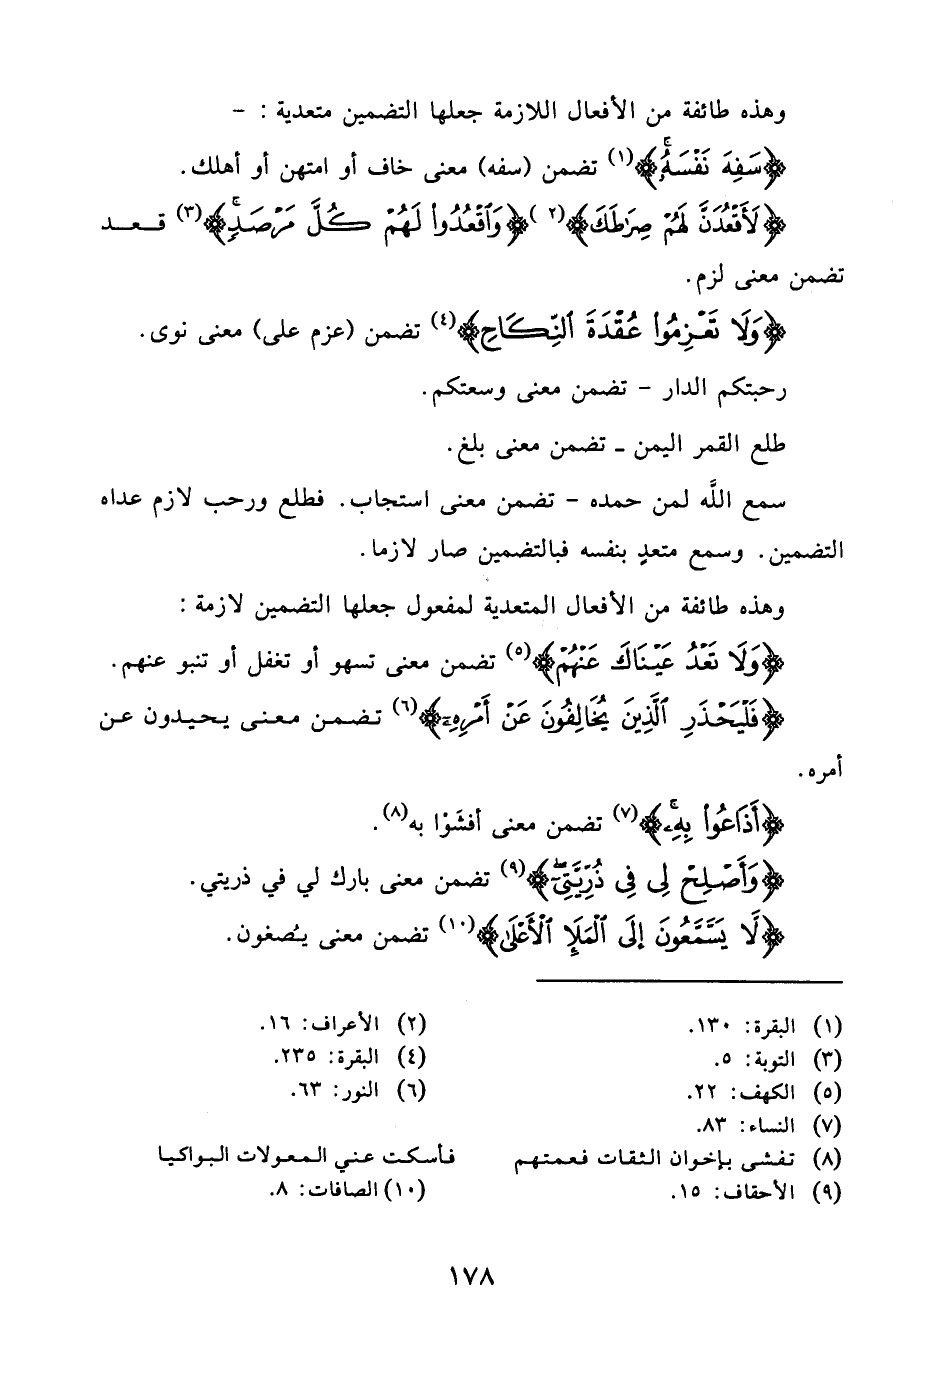 وهذه طائفة من الأفعال اللازمة جعلها التضمين متعدية : –
﴿سَفِهَ نَفْسَهُۥ﴾(١) تضمن (سفه) معنى خاف أو امتهن أو أهلك.
﴿لَأَقْعُدَنَّ لَهُمْ صِرَٰطَكَ﴾(٢) ﴿وَٱقْعُدُوا۟ لَهُمْ كُلَّ مَرْصَدٍ﴾(٣) قـعـد
تضمن معنى لزم.
﴿وَلَا تَعْزِمُوا۟ عُقْدَةَ ٱلنِّكَاحِ﴾(٤) تضمن (عزم على) معنى نوى.
رحبتكم الدار – تضمن معنى وسعتكم.
طلع القمر اليمن ـ تضمن معنى بلغ.
سمع اللَّه لمن حمده – تضمن معنى استجاب. فطلع ورحب لازم عداه
التضمين. وسمع متعدٍ بنفسه فبالتضمين صار لازما.
وهذه طائفة من الأفعال المتعدية لمفعول جعلها التضمين لازمة :
﴿وَلَا تَعْدُ عَيْنَاكَ عَنْهُمْ﴾(٥) تضمن معنى تسهو أو تغفل أو تنبو عنهم.
﴿فَلْيَحْذَرِ ٱلَّذِينَ يُخَالِفُونَ عَنْ أَمْرِهِۦٓ﴾(٦) تـضـمـن مـعـنـى يـحـيـدون عـن
أمره.
﴿أَذَاعُوا۟ بِهِۦ﴾(٧) تضمن معنى أفشَوْا به(٨).
﴿وَأَصْلِحْ لِى فِى ذُرِّيَّتِىٓ﴾(٩) تضمن معنى بارك لي في ذريتي.
﴿لَّا يَسَّمَّعُونَ إِلَى ٱلْمَلَإِ ٱلْأَعْلَىٰ﴾(١٠) تضمن معنى يُصغون.
(١) البقرة: ١٣٠.
(٢) الأعراف: ١٦.
(٣) التوبة: ٥.
(٤) البقرة: ٢٣٥.
(٥) الكهف: ٢٢.
(٦) النور: ٦٣.
(٧) النساء: ٨٣.
(٨) تفشى بإخوان الثقات فعمتهم فأسكت عني المعولات البواكيا
(٩) الأحقاف: ١٥.
(١٠) الصافات: ٨.
١٧٨